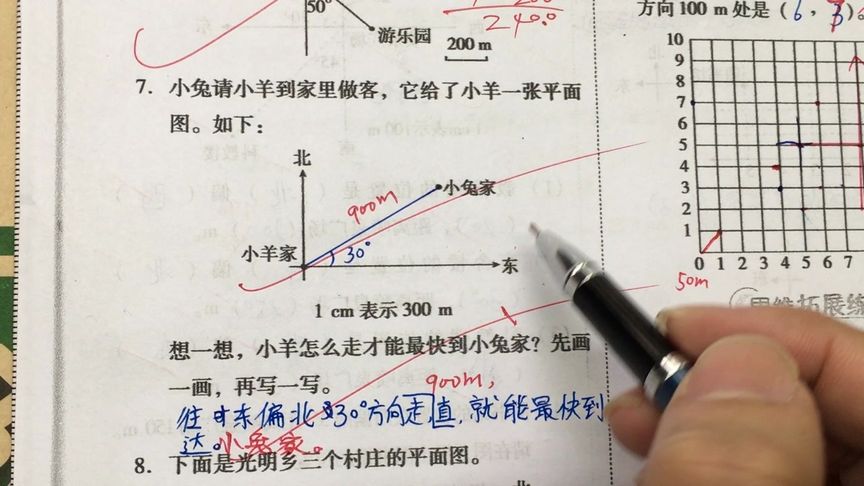 50°
游乐园
200 m
240.0
7. 小兔请小羊到家里做客，它给了小羊一张平面
图。如下：
北
小兔家
900m
小羊家
30°
东
1 cm 表示 300 m
想一想，小羊怎么走才能最快到小兔家？先画
一画，再写一写。
900m，
往东偏北30°方向走直，就能最快到
达。小兔家。
8. 下面是光明乡三个村庄的平面图。
方向 100 m 处是（6，3）。
10
9
8
7
6
5
4
3
2
1
0 1 2 3 4 5 6 7
50m
思维拓展练